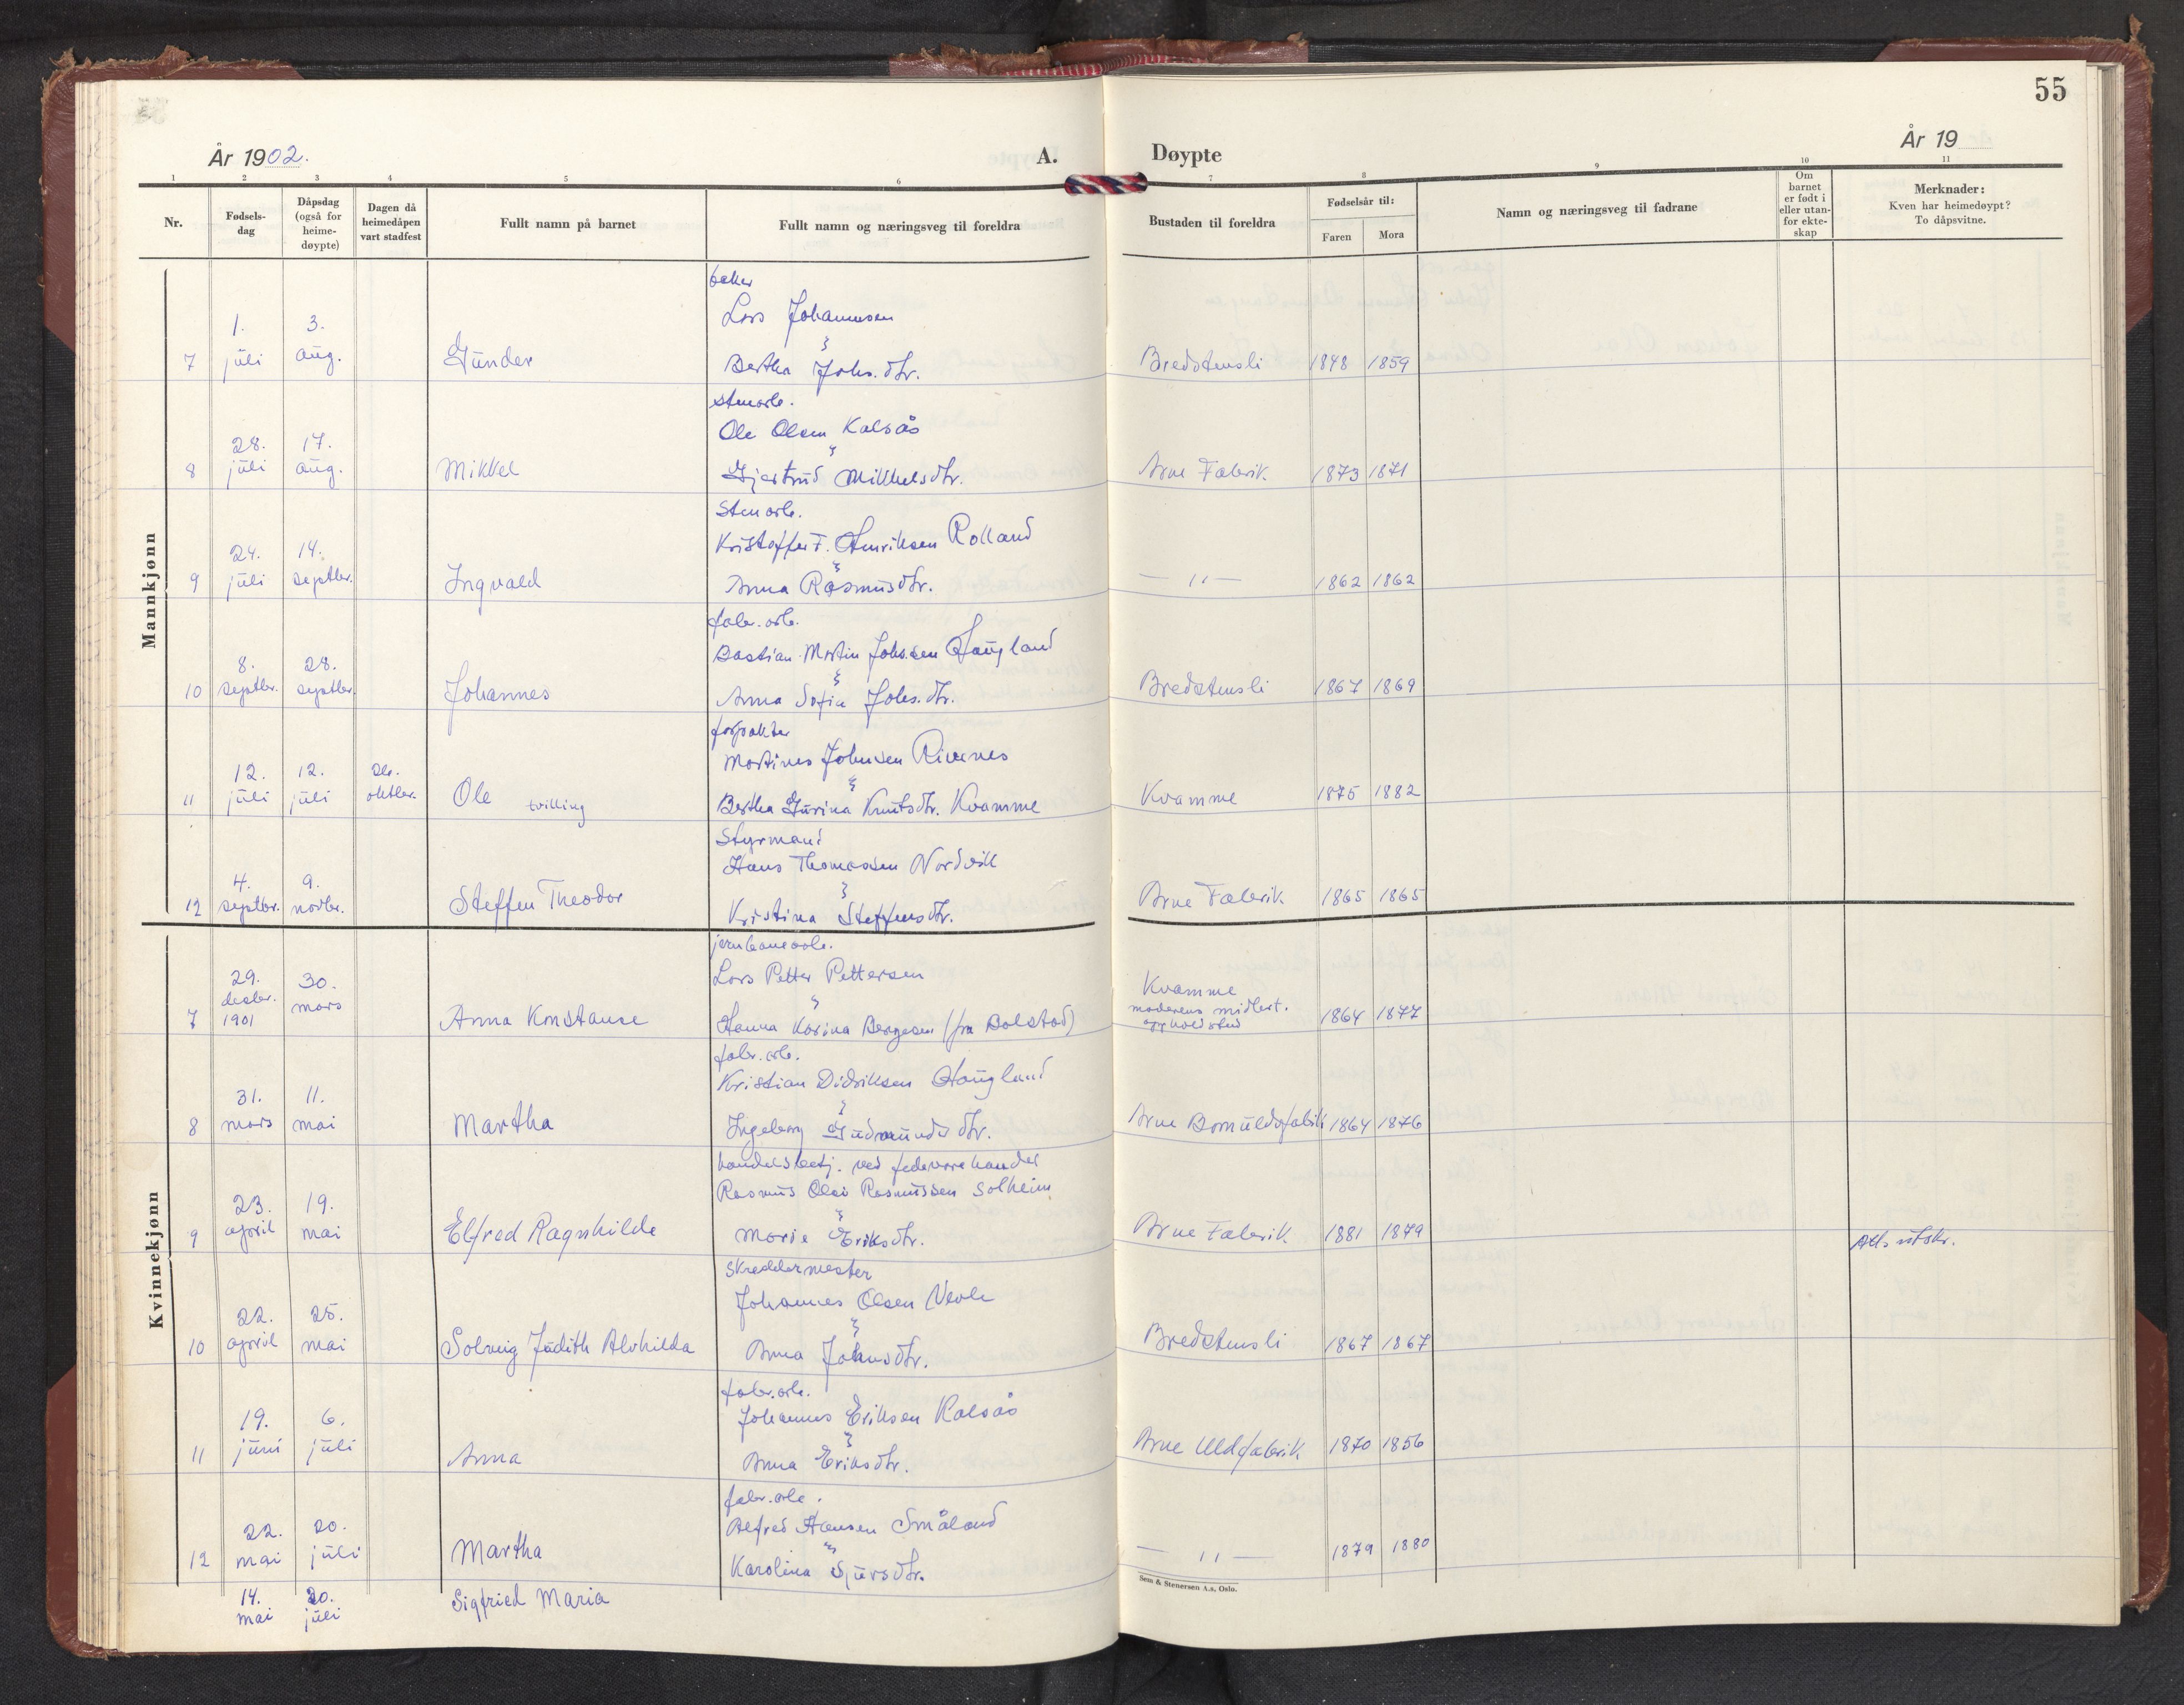 55
År 1902.
A.
Døypte
År 19
1 2 3 4 5 6 7 8 9 10 11
Nr.
Fødsels-
dag
Dåpsdag
(også for
heime-
døypte)
Dagen då
heimedåpen
vart stadfest
Fullt namn på barnet
Fullt namn og næringsveg til foreldra
Bustaden til foreldra
Fødselsår til:
Faren
Mora
Namn og næringsveg til fadrane
Om
barnet
er født i
eller utan-
for ekte-
skap
Merknader:
Kven har heimedøypt?
To dåpsvitne.
Mannkjønn
baker
Lars Johannesen
1. 3.
&
7 juli aug. Gunder Bertha Johs.dtr. Bredstensli 1848 1859
stenarb.
Ole Olsen Kalsås
28. 17.
&
8 juli aug. Mikkel Gjertrud Mikkelsdtr. Arne Fabrik. 1873 1871
Stenarb.
Kristoffer F. Henriksen Rolland
24. 14.
&
9 juli septbr. Ingvald Anna Rasmusdtr. — " — 1862 1862
fabr.arb.
Bastian Martin Johs.sen Haugland
8. 28.
&
10 septbr. septbr. Johannes Anna Sofia Johs.dtr. Bredstensli 1867 1869
forpakter
Martines Johnsen Rivenes
12. 12. 26.
&
11 juli juli oktbr. Ole tvilling Bertha Gurina Knutsdtr. Kvamme Kvamme 1875 1882
Styrmand
Hans Thomassen Nordvik
4. 9.
&
12 septbr. novbr. Steffen Theodor Kristina Steffensdtr. Arne Fabrik. 1865 1865
Kvinnekjønn
jernbanearb.
Lars Petter Pettersen
29. 30.
desbr. mars
&
Kvamme
moderens midlert.
oppholdsted
7 1901 Anna Konstanse Hanna Karina Bergesen (fra Bolstad) 1864 1877
fabr.arb.
Kristian Didriksen Haugland
31. 11.
&
8 mars mai Martha Ingeborg Gudmundsdtr. Arne Bomuldsfabrik 1864 1876
handelsbetj. ved fedevarehandel
Rasmus Olai Rasmussen Solheim
23. 19.
&
9 april mai Elfred Ragnhilde Marie Eriksdtr. Arne Fabrik. 1881 1879 Att. utskr.
skreddermester
Johannes Olsen Nevle
22. 25.
&
10 april mai Solveig Judith Alvhilda Anna Johnsdtr. Bredstensli 1867 1867
fabr.arb.
Johannes Eriksen Kalsås
19. 6.
&
11 juni juli Anna Anna Eriksdtr. Arne Uldfabrik 1870 1856
fabr.arb.
Alfred Hansen Småland
22. 20.
&
12 mai juli Martha Karolina Sjursdtr. — " — 1879 1880
14. 20.
mai juli Sigfried Maria
Sem & Stenersen A.s, Oslo.